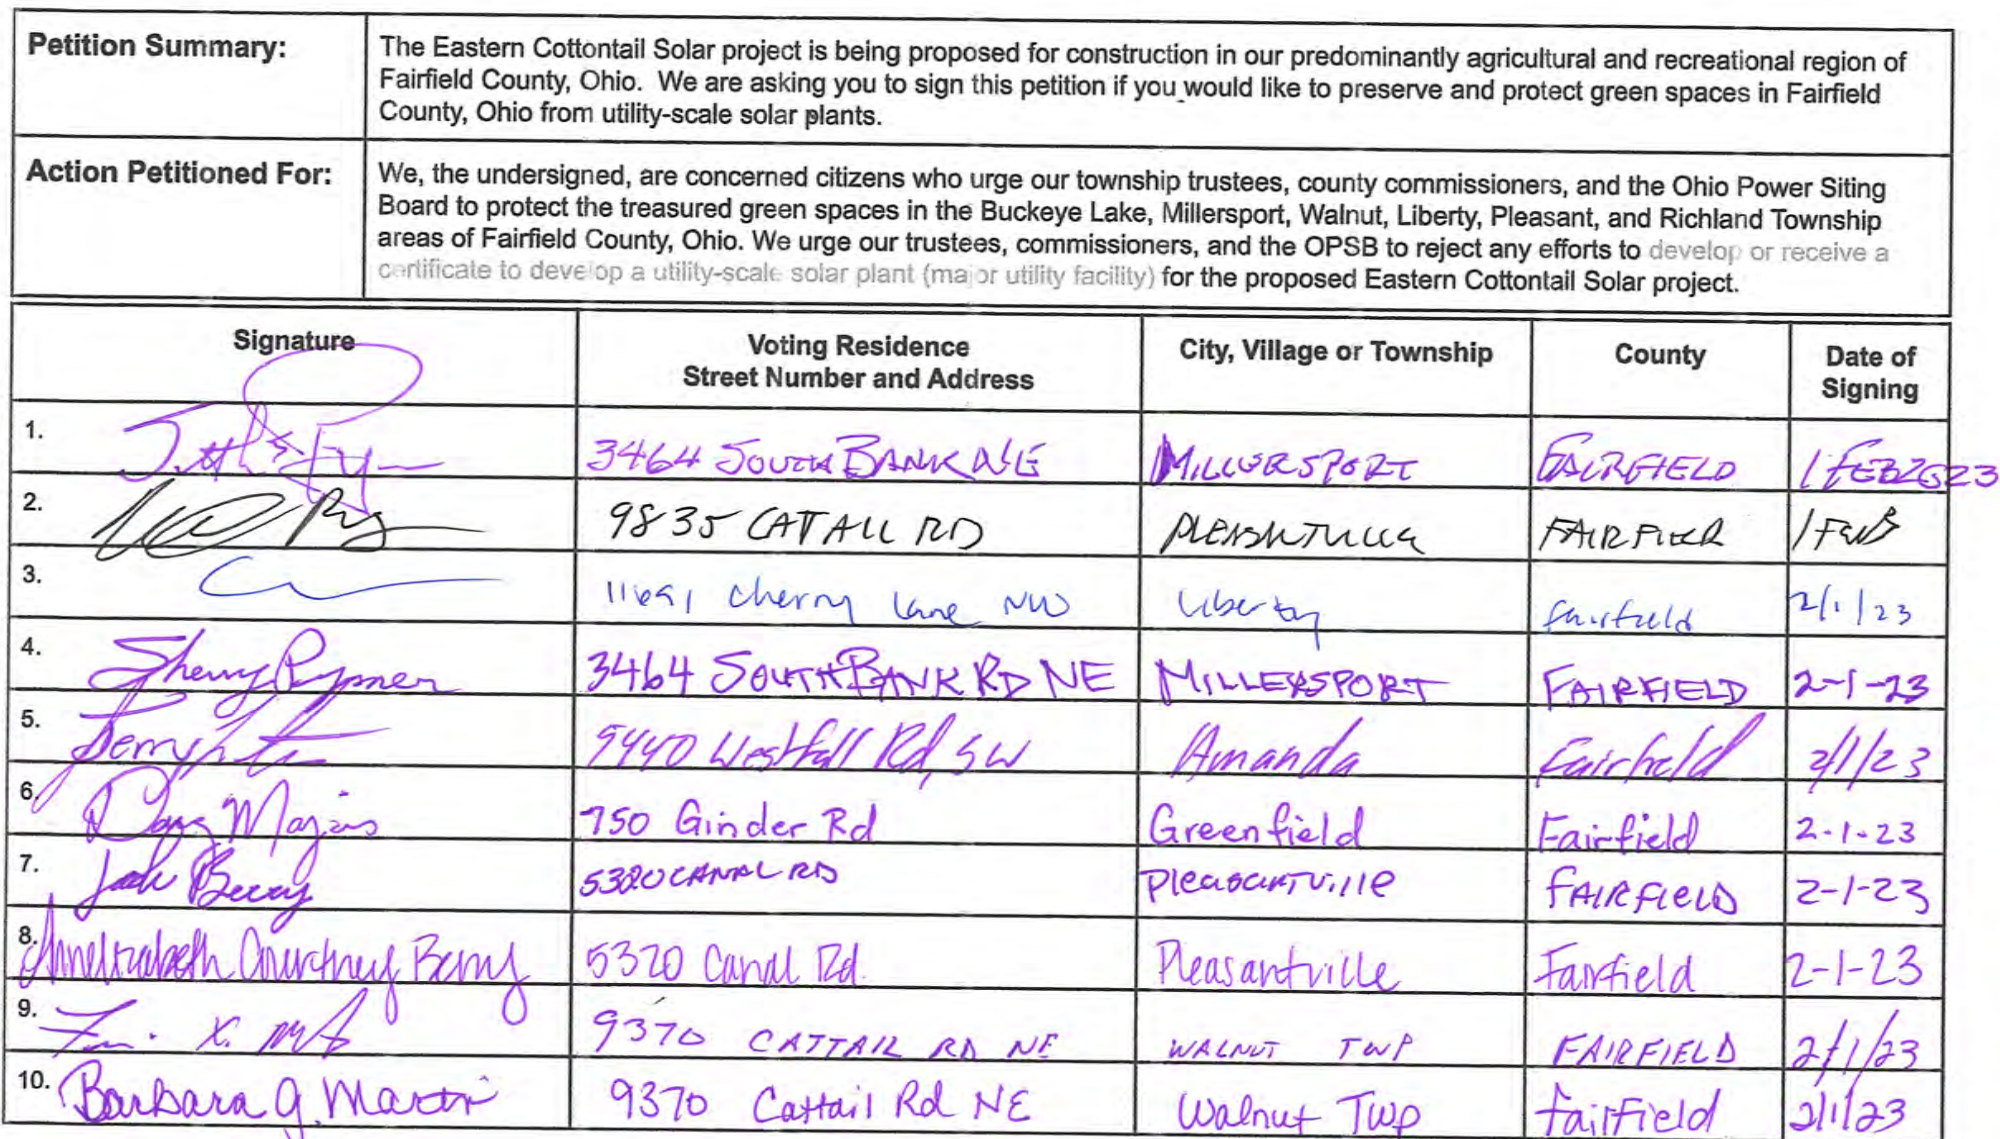 Petition Summary:
The Eastern Cottontail Solar project is being proposed for construction in our predominantly agricultural and recreational region of
Fairfield County, Ohio. We are asking you to sign this petition if you would like to preserve and protect green spaces in Fairfield
County, Ohio from utility-scale solar plants.
Action Petitioned For:
We, the undersigned, are concerned citizens who urge our township trustees, county commissioners, and the Ohio Power Siting
Board to protect the treasured green spaces in the Buckeye Lake, Millersport, Walnut, Liberty, Pleasant, and Richland Township
areas of Fairfield County, Ohio. We urge our trustees, commissioners, and the OPSB to reject any efforts to develop or receive a
certificate to develop a utility-scale solar plant (major utility facility) for the proposed Eastern Cottontail Solar project.
Signature
Voting Residence
Street Number and Address
City, Village or Township
County
Date of
Signing
1. 3464 SOUTH BANK NE MILLERSPORT FAIRFIELD 1 FEB 2023
2. 9835 CATAIL RD FAIRFIELD 1 FEB
3. 11691 Cherry Lane NW Liberty Fairfield 2/1/23
4. Sherry Rymer 3464 SOUTH BANK RD NE MILLERSPORT FAIRFIELD 2-1-23
5. 9440 Westfall Rd, SW Amanda Fairfield 2/1/23
6. Doug 750 Ginder Rd Greenfield Fairfield 2-1-23
7. Berry 5320 CANAL RD Pleasantville FAIRFIELD 2-1-23
8. Courtney Berry 5320 Canal Rd. Pleasantville Fairfield 2-1-23
9. 9370 CATTAIL RD NE WALNUT TWP FAIRFIELD 2/1/23
10. Barbara J. Martin 9370 Cattail Rd NE Walnut Twp Fairfield 2/1/23